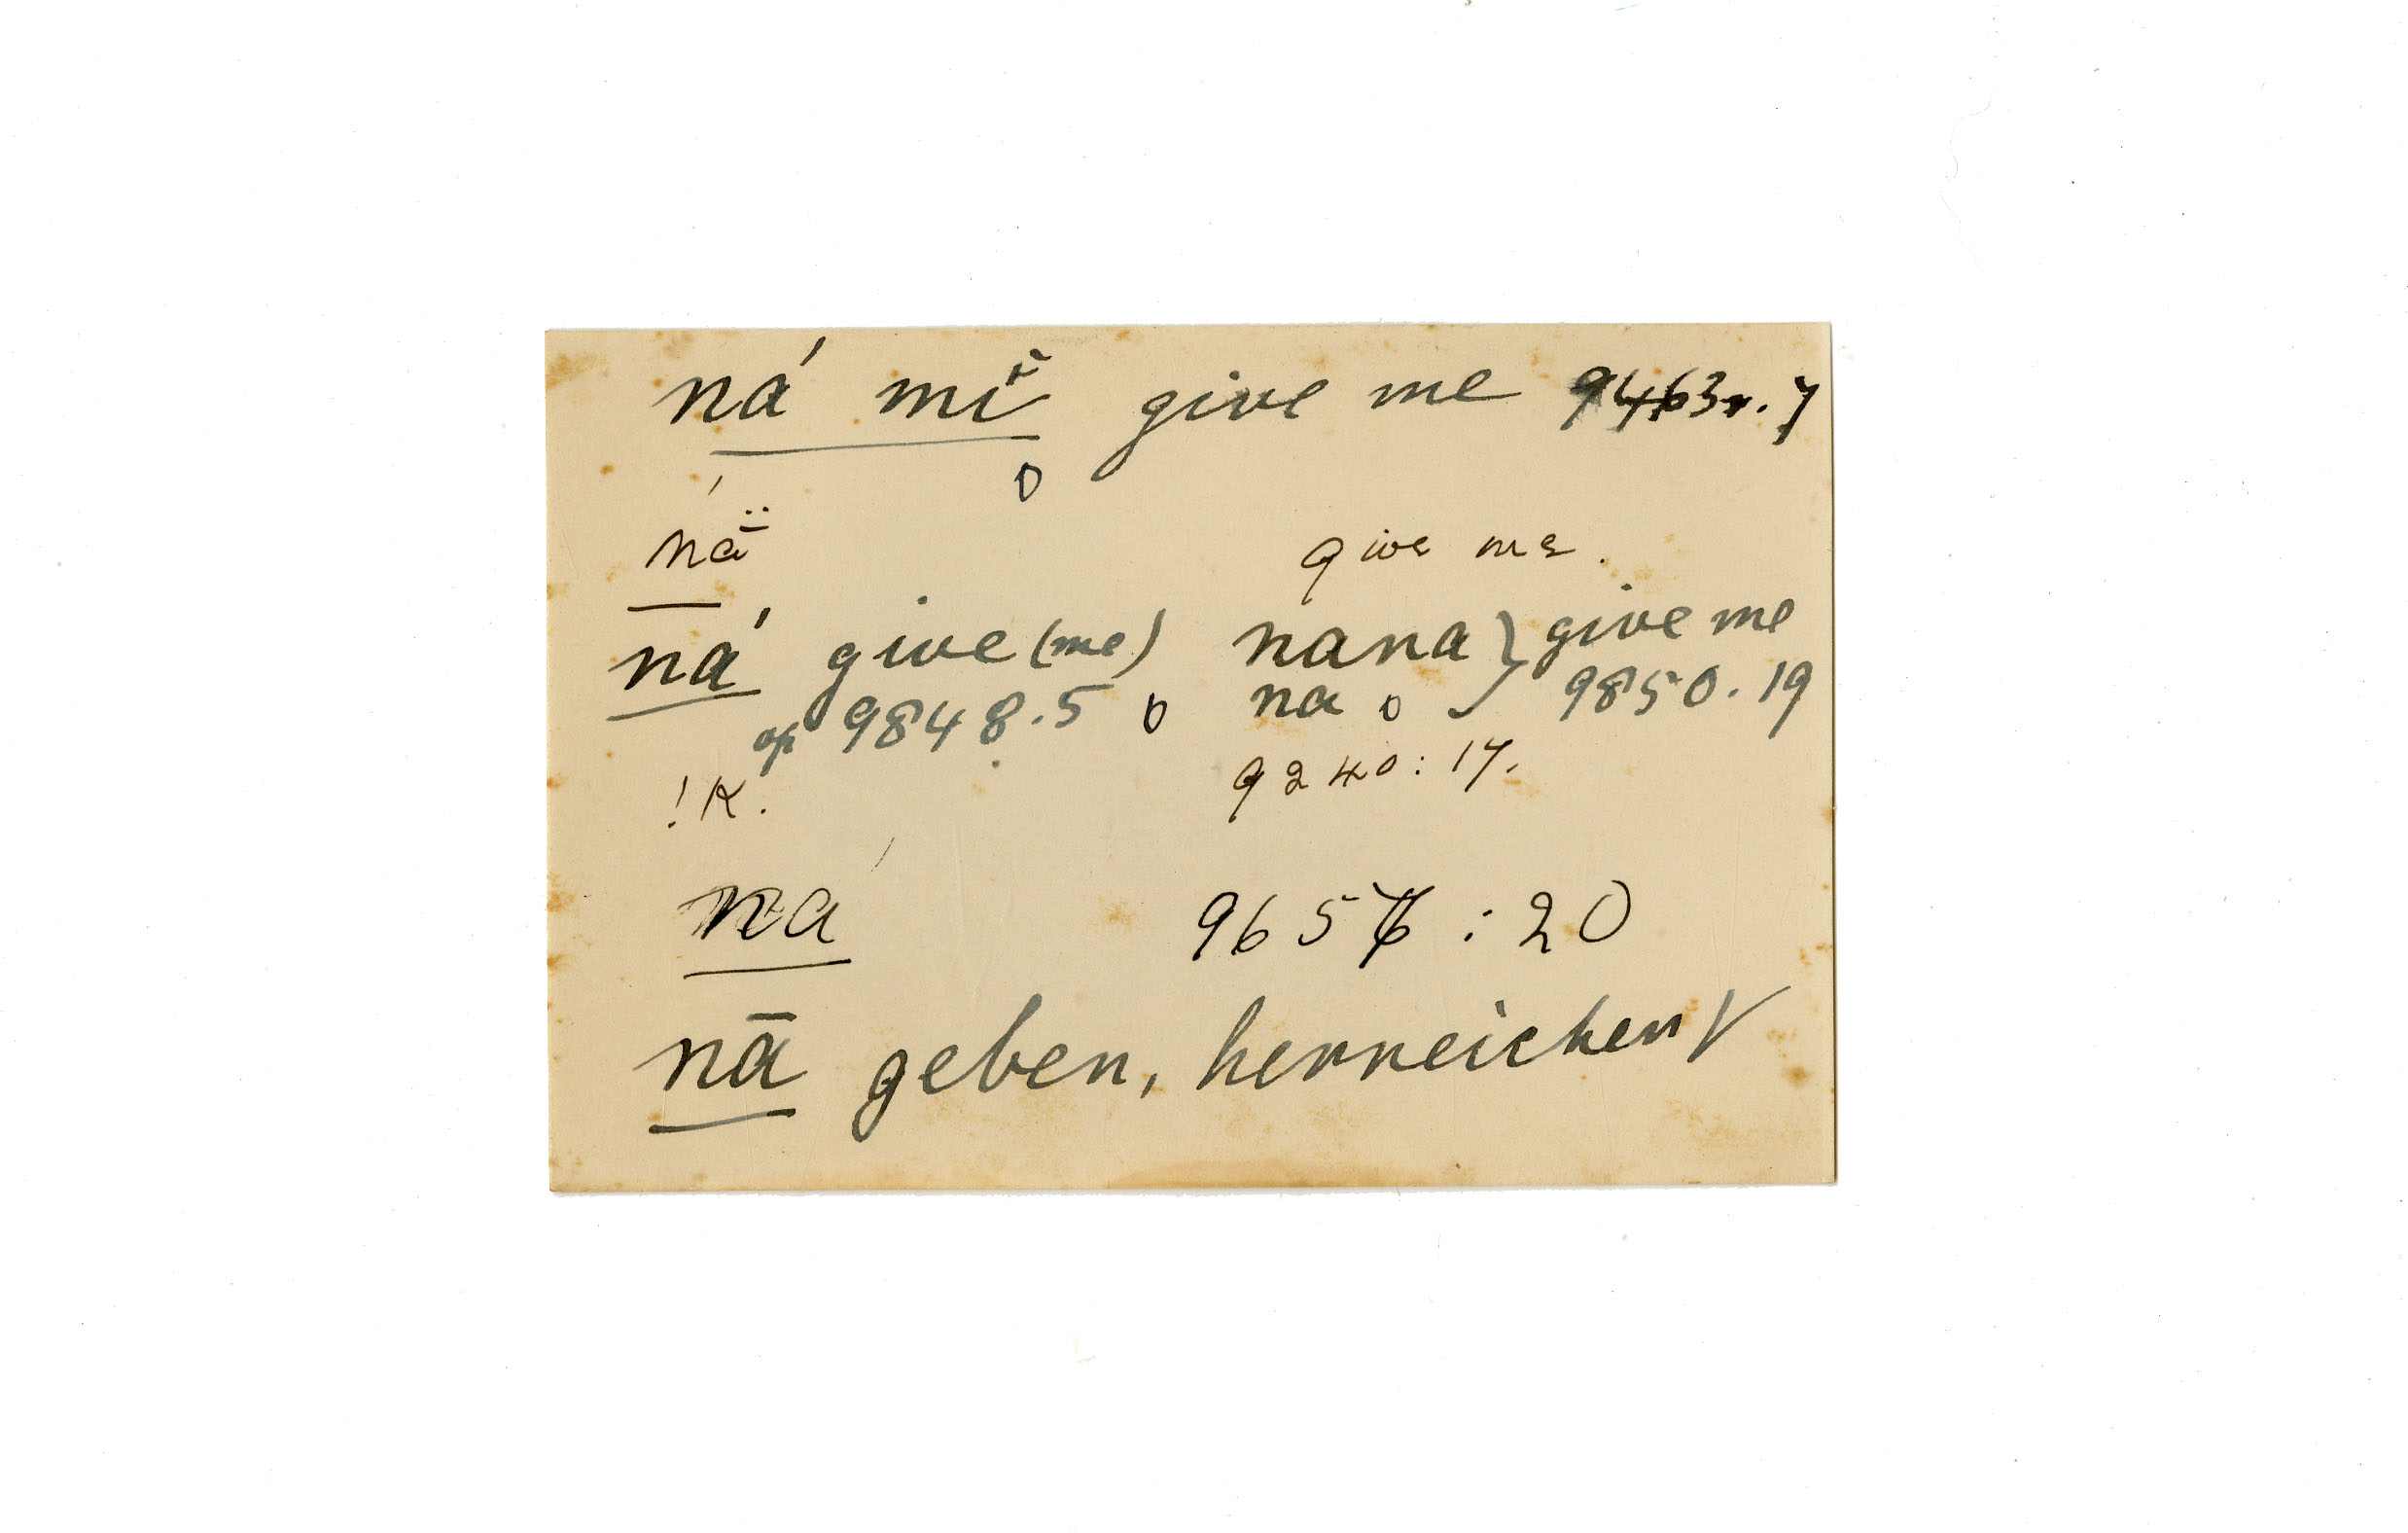 ná mĭ̄ give me 9463r.7
nā̈ give me.
ná give (me) nana } give me
op 9848.5 na } 9850.19
!K. 9240:17.
ná 9656:20
nā geben, herreichen